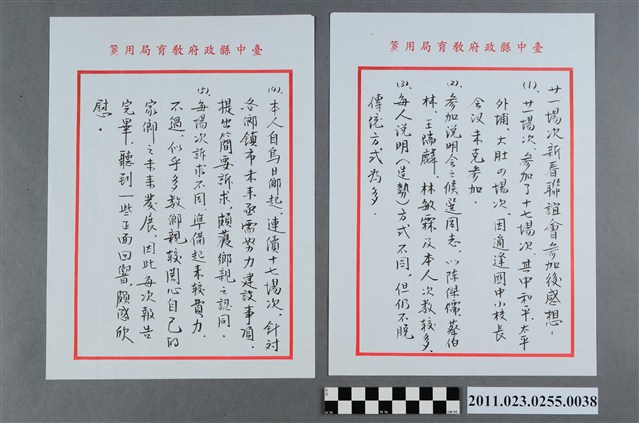 箋用局育教府政縣中臺
廿一場次新春聯誼會參加後感想：
(1)、廿一場次、參加了十七場次、其中和平、太平
外埔、大肚の場次、因適逢國中小校長
會議未克參加．
(2)、參加說明會之候選同志、以陳傑儒、蔡伯
林、王瑞麟、林敏霖及本人次數較多．
(3)、每人說明(造勢)方式不同、但仍不脫
傳統方式為多．
箋用局育教府政縣中臺
(4)、本人自烏日鄉起、連續十七場次、針對
各鄉鎮市未來亟需努力建設事項、
提出簡要訴求、頗獲鄉親之認同．
(5)、每場次訴求不同、準備起來較費力、
不過、似乎多數鄉親較関心自己的
家鄉之未來發展、因此每次報告
完畢、聽到一些正面回響、頗感欣
慰．
2011.023.0255.0038